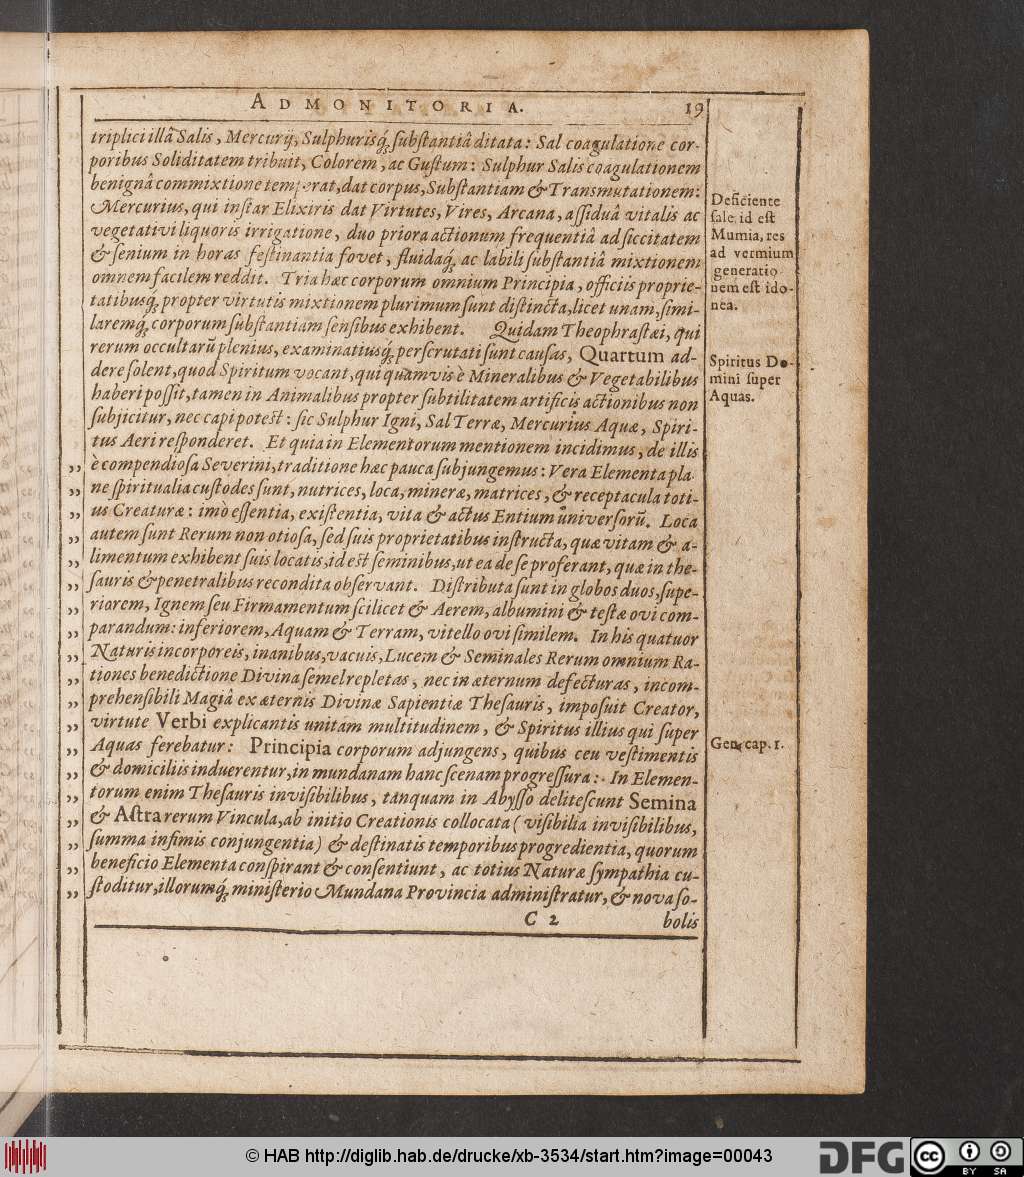 ADMONITORIA. 19
triplici illâ Salis, Mercurij, Sulphurisq́; substantiâ ditata: Sal coagulatione cor-
poribus Soliditatem tribuit, Colorem, ac Gustum: Sulphur Salis coagulationem
benignâ commixtione temperat, dat corpus, Substantiam & Transmutationem:
Mercurius, qui instar Elixiris dat Virtutes, Vires, Arcana, assiduâ vitalis ac
vegetativi liquoris irrigatione, duo priora actionum frequentiâ ad siccitatem
& senium in horas festinantia fovet, fluidaq́; ac labili substantiâ mixtionem
omnem facilem reddit. Tria hæc corporum omnium Principia, officiis proprie-
tatibusq́; propter virtutis mixtionem plurimum sunt distincta, licet unam, simi-
laremq́; corporum substantiam sensibus exhibent. Quidam Theophrastæi, qui
rerum occultarū plenius, examinatiusq́; perscrutati sunt causas, Quartum ad-
dere solent, quod Spiritum vocant, qui quamvis è Mineralibus & Vegetabilibus
haberi possit, tamen in Animalibus propter subtilitatem artificis actionibus non
subjicitur, nec capi potest: sic Sulphur Igni, Sal Terræ, Mercurius Aquæ, Spiri-
tus Aeri responderet. Et quia in Elementorum mentionem incidimus, de illis
,, è compendiosa Severini, traditione hæc pauca subjungemus: Vera Elementa pla-
,, ne spiritualia custodes sunt, nutrices, loca, mineræ, matrices, & receptacula toti-
,, us Creaturæ: imò essentia, existentia, vita & actus Entium universorū. Loca
,, autem sunt Rerum non otiosa, sed suis proprietatibus instructa, quæ vitam & a-
,, limentum exhibent suis locatis, id est seminibus, ut ea de se proferant, quæ in the-
,, sauris & penetralibus recondita observant. Distributa sunt in globos duos, supe-
,, riorem, Ignem seu Firmamentum scilicet & Aerem, albumini & testæ ovi com-
,, parandum: inferiorem, Aquam & Terram, vitello ovi similem. In his quatuor
,, Naturis incorporeis, inanibus, vacuis, Lucem & Seminales Rerum omnium Ra-
,, tiones benedictione Divina semel repletas, nec in æternum defecturas, incom-
,, prehensibili Magiâ ex æternis Divinæ Sapientiæ Thesauris, imposuit Creator,
,, virtute Verbi explicantis unitam multitudinem, & Spiritus illius qui super
,, Aquas ferebatur: Principia corporum adjungens, quibus ceu vestimentis
,, & domiciliis induerentur, in mundanam hanc scenam progressura: In Elemen-
,, torum enim Thesauris invisibilibus, tanquam in Abysso delitescunt Semina
,, & Astra rerum Vincula, ab initio Creationis collocata (visibilia invisibilibus,
,, summa infimis conjungentia) & destinatis temporibus progredientia, quorum
,, beneficio Elementa conspirant & consentiunt, ac totius Naturæ sympathia cu-
,, stoditur, illorumq́; ministerio Mundana Provincia administratur, & nova so-
C 2 bolis
Deficiente
sale, id est
Mumia, res
ad vermium
generatio
nem est ido-
nea.
Spiritus Do-
mini super
Aquas.
Gen. cap. 1.
© HAB http://diglib.hab.de/drucke/xb-3534/start.htm?image=00043
DFG
cc BY SA